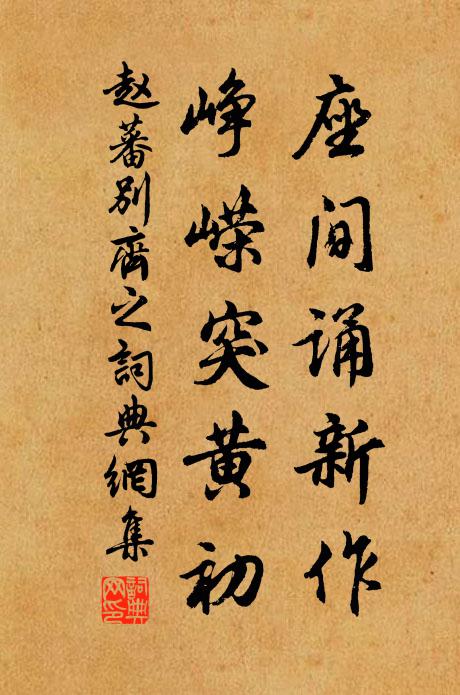 座间诵新作
峥嵘突黄初
赵蕃别齊之詞典網集
詞典网印